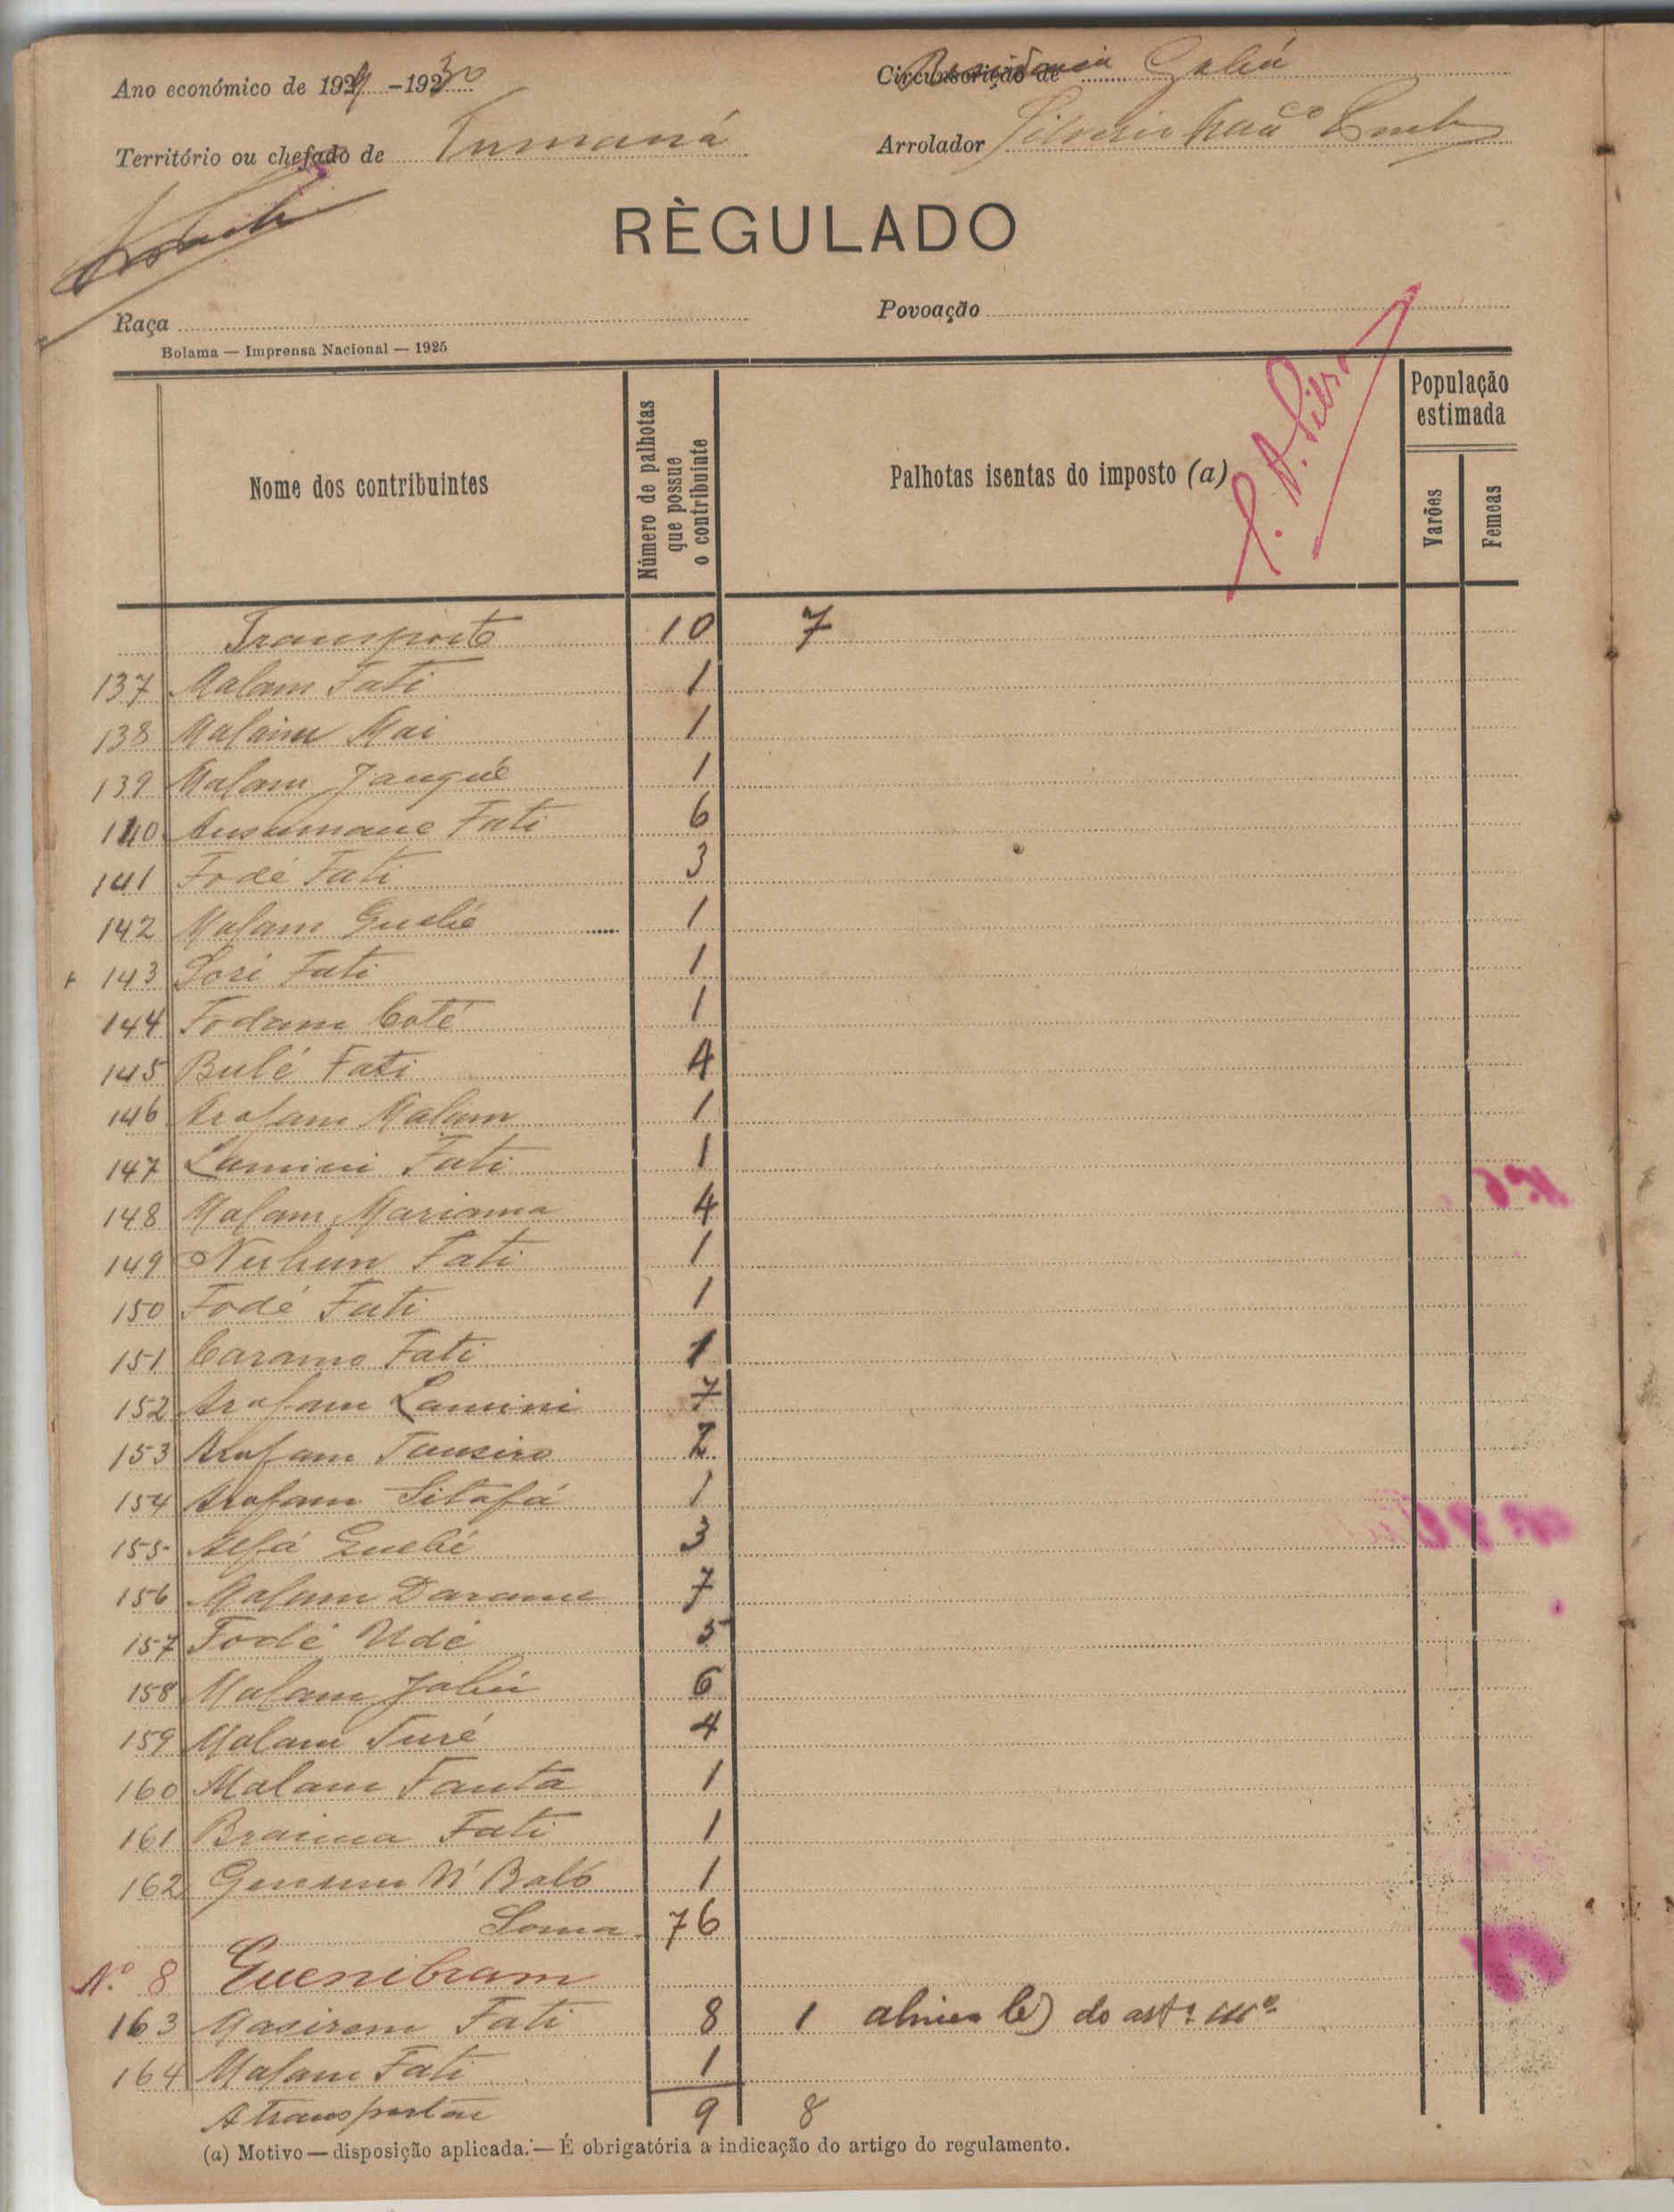 Ano económico de 1929 - 1930
Circunscrição de Gabú
Território ou chefado de Tumaná
Arrolador
RÈGULADO
Raça
Povoação
Bolama — Imprensa Nacional — 1925
Nome dos contribuintes
Número de palhotas que possue o contribuinte
Palhotas isentas do imposto (a)
População estimada
Varões
Femeas
Transporte 10 7
137 Malam Fati 1
138 Malam Mai 1
139 Malam 1
140 Ansumane Fati 6
141 Fodé Fati 3
142 Malam 1
143 Sori Fati 1
144 Fodam Coté 1
145 Bulé Fati 4
146 Arafam Malam 1
147 Lamini Fati 1
148 Malam Mariama 4
149 Fati 1
150 Fodé Fati 1
151 Caramo Fati 1
152 Arafam Lamini 7
153 Arafam 2
154 Arafam Sitafá 1
155 3
156 Malam Darame 7
157 Fodé 5
158 Malam Jabú 6
159 Malam Turé 4
160 Malam Fanta 1
161 Braima Fati 1
162 N'Baló 1
Soma 76
N.º 8 Guenibram
163 Masirem Fati 8 1 alinea b) do artº
164 Malam Fati 1
A transportar 9 8
(a) Motivo — disposição aplicada. — É obrigatória a indicação do artigo do regulamento.